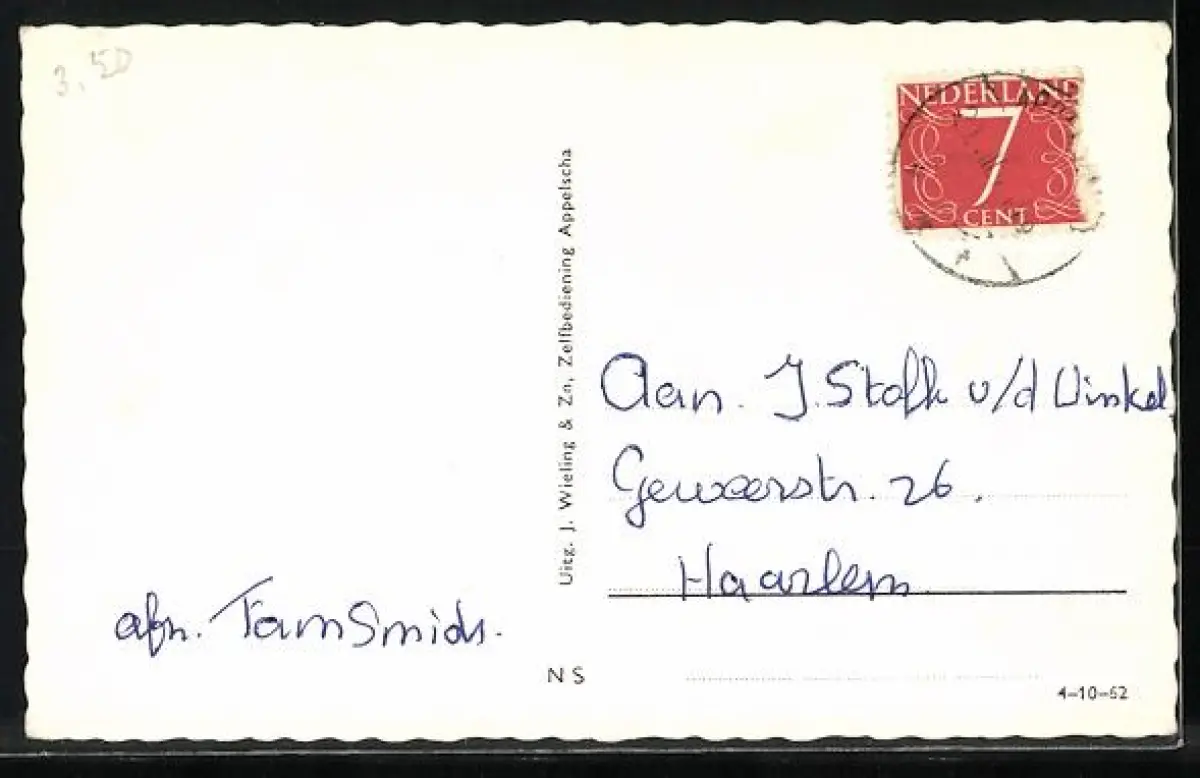 3.50
NEDERLAND
7
CENT
Uitg. J. Wieling & Zn, Zelfbediening Appelscha
Aan. J. Stolk v/d Winkel
Geweerstr. 26.
Haarlem
afn. Fam Smids.
N S
4-10-62